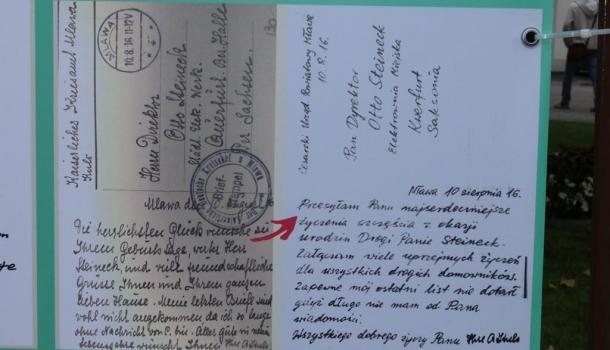 Kaiserliches Kreisamt Mlawa
MLAWA
10.8.16.11-12V
Herrn Direktor
Otto Steineck
Städt. Elek. Werk.
Querfurt
Bez. Halle
Prov. Sachsen.
130
Mlawa den
Brief-
Stempel
Die herzlichsten Glückwünsche zu
Ihrem Geburtstage, werter Herr
Steineck, und viele freundschaftliche
Grüsse Ihnen und Ihrem ganzen
lieben Hause. Meine letzten Briefe sind
wohl nicht angekommen da ich so lange
ohne Nachricht von
bin. Alles gute im neuen
Lebensjahre wünscht Ihnen
Cesarski Urząd Powiatowy Mława
10.8.16.
Pan Dyrektor
Otto Steineck
Elektrownia Miejska
Kwerfurt
Saksonia
Mława 10 sierpnia 16.
Przesyłam Panu najserdeczniejsze
życzenia szczęścia z okazji
urodzin Drogi Panie Steineck.
Załączam wiele uprzejmych życzeń
dla wszystkich drogich domowników.
Zapewne mój ostatni list nie dotarł
gdyż długo nie mam od Pana
wiadomości.
Wszystkiego dobrego życzy Panu